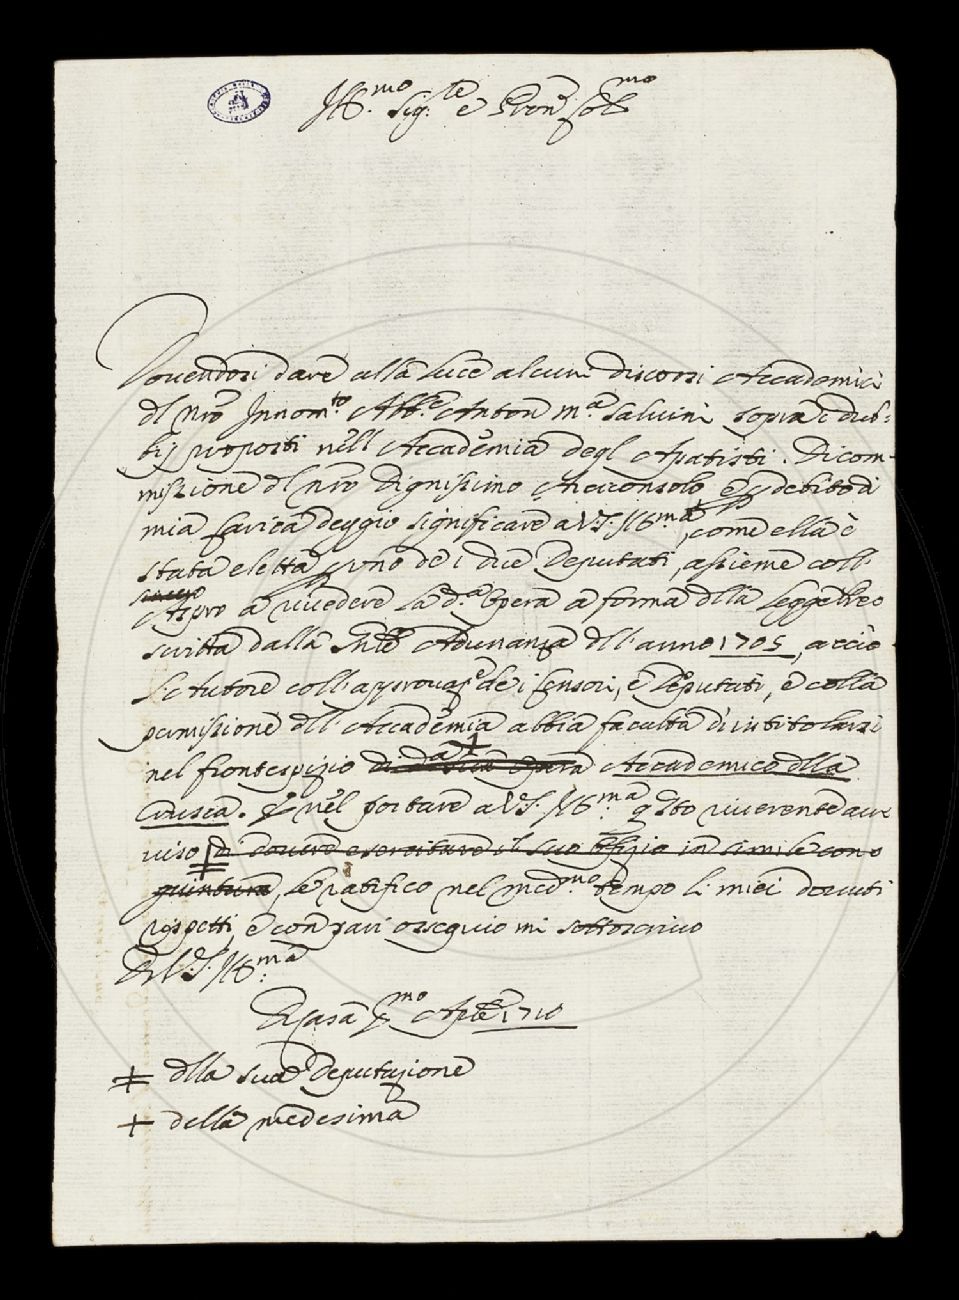 Ill.mo Sig.re e Pron Col.mo
Dovendosi dare alla luce alcuni discorsi Accademici
dl nro Innom.to Abb.e Anton M.a Salvini sopra i dub-
bij proposti nell Accademia degl Apatisti. Di com-
missione dl nro dignissimo Arciconsolo, e p debito di
mia carica deggio significare a V.S. Ill.ma, come ella è
stata eletta p uno de i due Deputati, assieme coll.
Aspro a rivedere la d.a Opera a forma dlla Legge pre-
scritta dalla Adunanza dll' anno 1705, acciò
l'Autore coll' approvaz.e de i Censori, e Deputati, e colla
permissione dll' Accademia abbia facultà di intitolarsi
nel frontespizio di d.a sua opera + Accademico dlla
Crusca. E nel portare a V.S. Ill.ma q.sto riverente av-
viso di dovere esercitare il suo offizio in simile con-
giuntura, le ratifico nel med.mo tempo li miei dovuti
rispetti, e con pari ossequio mi sottoscrivo
Di V.S. Ill.ma
Di Casa p.mo Aple 1710
‡ dlla sua Deputazione
+ della medesima